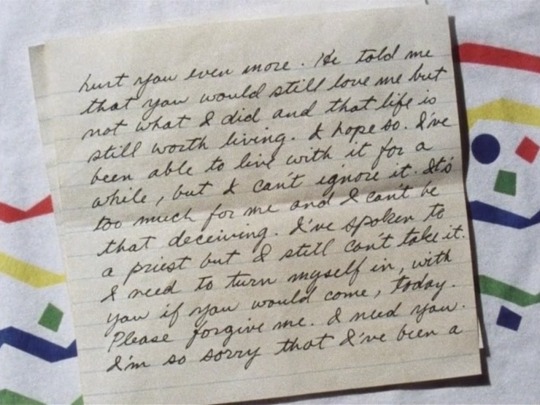 hurt you even more. He told me
that you would still love me but
not what I did and that life is
still worth living. I hope so. I've
been able to live with it for a
while, but I can't ignore it. It's
too much for me and I can't be
that deceiving. I've spoken to
a priest but I still can't take it.
I need to turn myself in, with
you if you would come, today.
Please forgive me. I need you.
I'm so sorry that I've been a